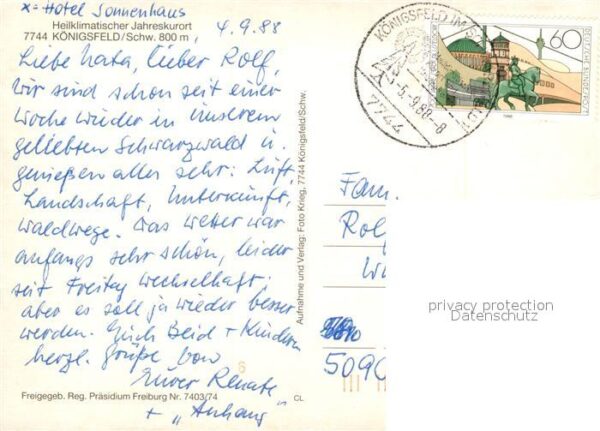 x = Hotel Sonnenhaus
Heilklimatischer Jahreskurort
7744 KÖNIGSFELD/Schw. 800 m,
4.9.88
Liebe Nata, lieber Rolf,
Wir sind schon seit einer
Woche wieder in unserem
geliebten Schwarzwald u.
genießen alles sehr: Luft,
Landschaft, Unterkunft,
Waldwege. Das Wetter war
anfangs sehr schön, leider
seit Freitag wechselhaft.
aber es soll ja wieder besser
werden. Euch Beid + Kindern
herzl. Grüße von
Eurer Renate
+ "Anhang"
Freigegeb. Reg. Präsidium Freiburg Nr. 7403/74
CL
Aufnahme und Verlag: Foto Krieg, 7744 Königsfeld/Schw.
KÖNIGSFELD IM
-5.-9.88-8
7744
60
DEUTSCHE BUNDESPOST
1988
Fam.
Rolf
5090
6
privacy protection
Datenschutz